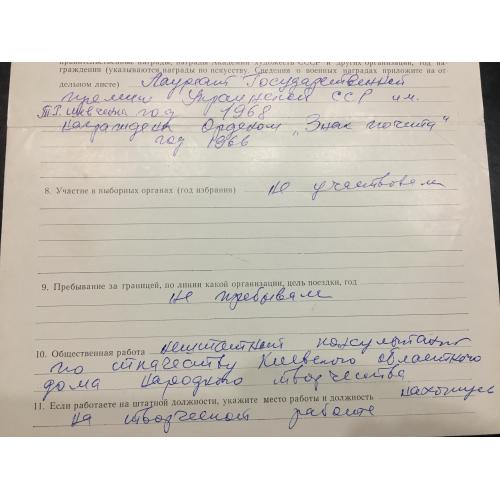 правительственные награды, награды Академии художеств СССР и других организаций, год на-
граждения (указываются награды по искусству. Сведения о военных наградах приложите на от-
дельном листе) Лауреат Государственной
премии Украинской ССР им.
Т.Г. Шевченко год 1968
награждён Орденом „Знак почёта"
год 1966
8. Участие в выборных органах (год избрания) не участвовал
9. Пребывание за границей, по линии какой организации, цель поездки, год
не пребывал
10. Общественная работа нештатный консультант
по ткачеству Киевского областного
дома народного творчества
11. Если работаете на штатной должности, укажите место работы и должность нахожусь
на творческой работе